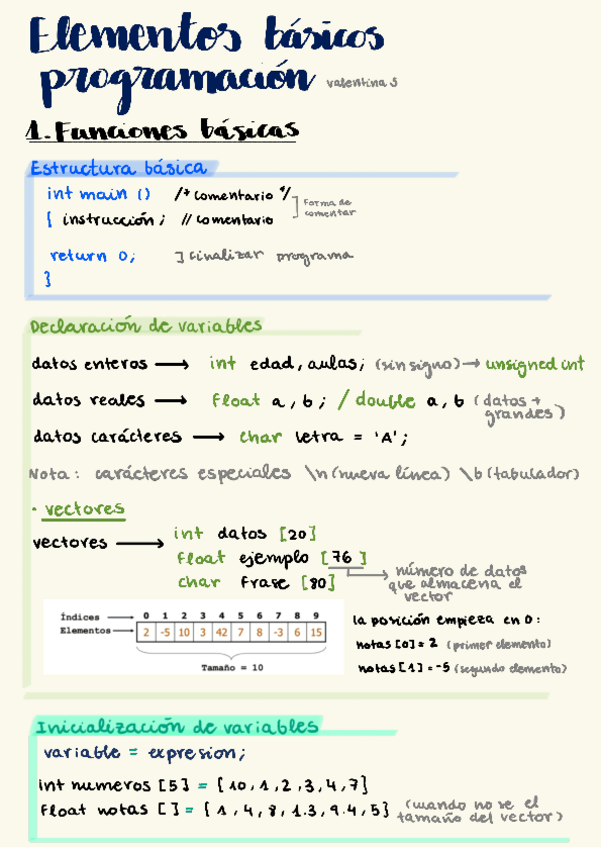 Elementos básicos
programación valentina s
1. Funciones básicas
Estructura básica
int main () /* comentario */
{ instrucción; // comentario
Forma de
comentar
return 0; ] finalizar programa
}
Declaración de variables
datos enteros → int edad, aulas; (sin signo) → unsigned int
datos reales → float a, b; / double a, b (datos +
grandes)
datos carácteres → char letra = 'A';
Nota: carácteres especiales \n (nueva línea) \b (tabulador)
· vectores
vectores → int datos [20]
float ejemplo [76]
char frase [80]
número de datos
que almacena el
vector
Índices → 0 1 2 3 4 5 6 7 8 9
Elementos → 2 -5 10 3 42 7 8 -3 6 15
Tamaño = 10
la posición empieza en 0:
notas [0] = 2 (primer elemento)
notas [1] = -5 (segundo elemento)
Inicialización de variables
variable = expresion;
int numeros [5] = [10, 1, 2, 3, 4, 7]
float notas [ ] = [1, 4, 8, 1.3, 9.4, 5] (cuando no se el
tamaño del vector)